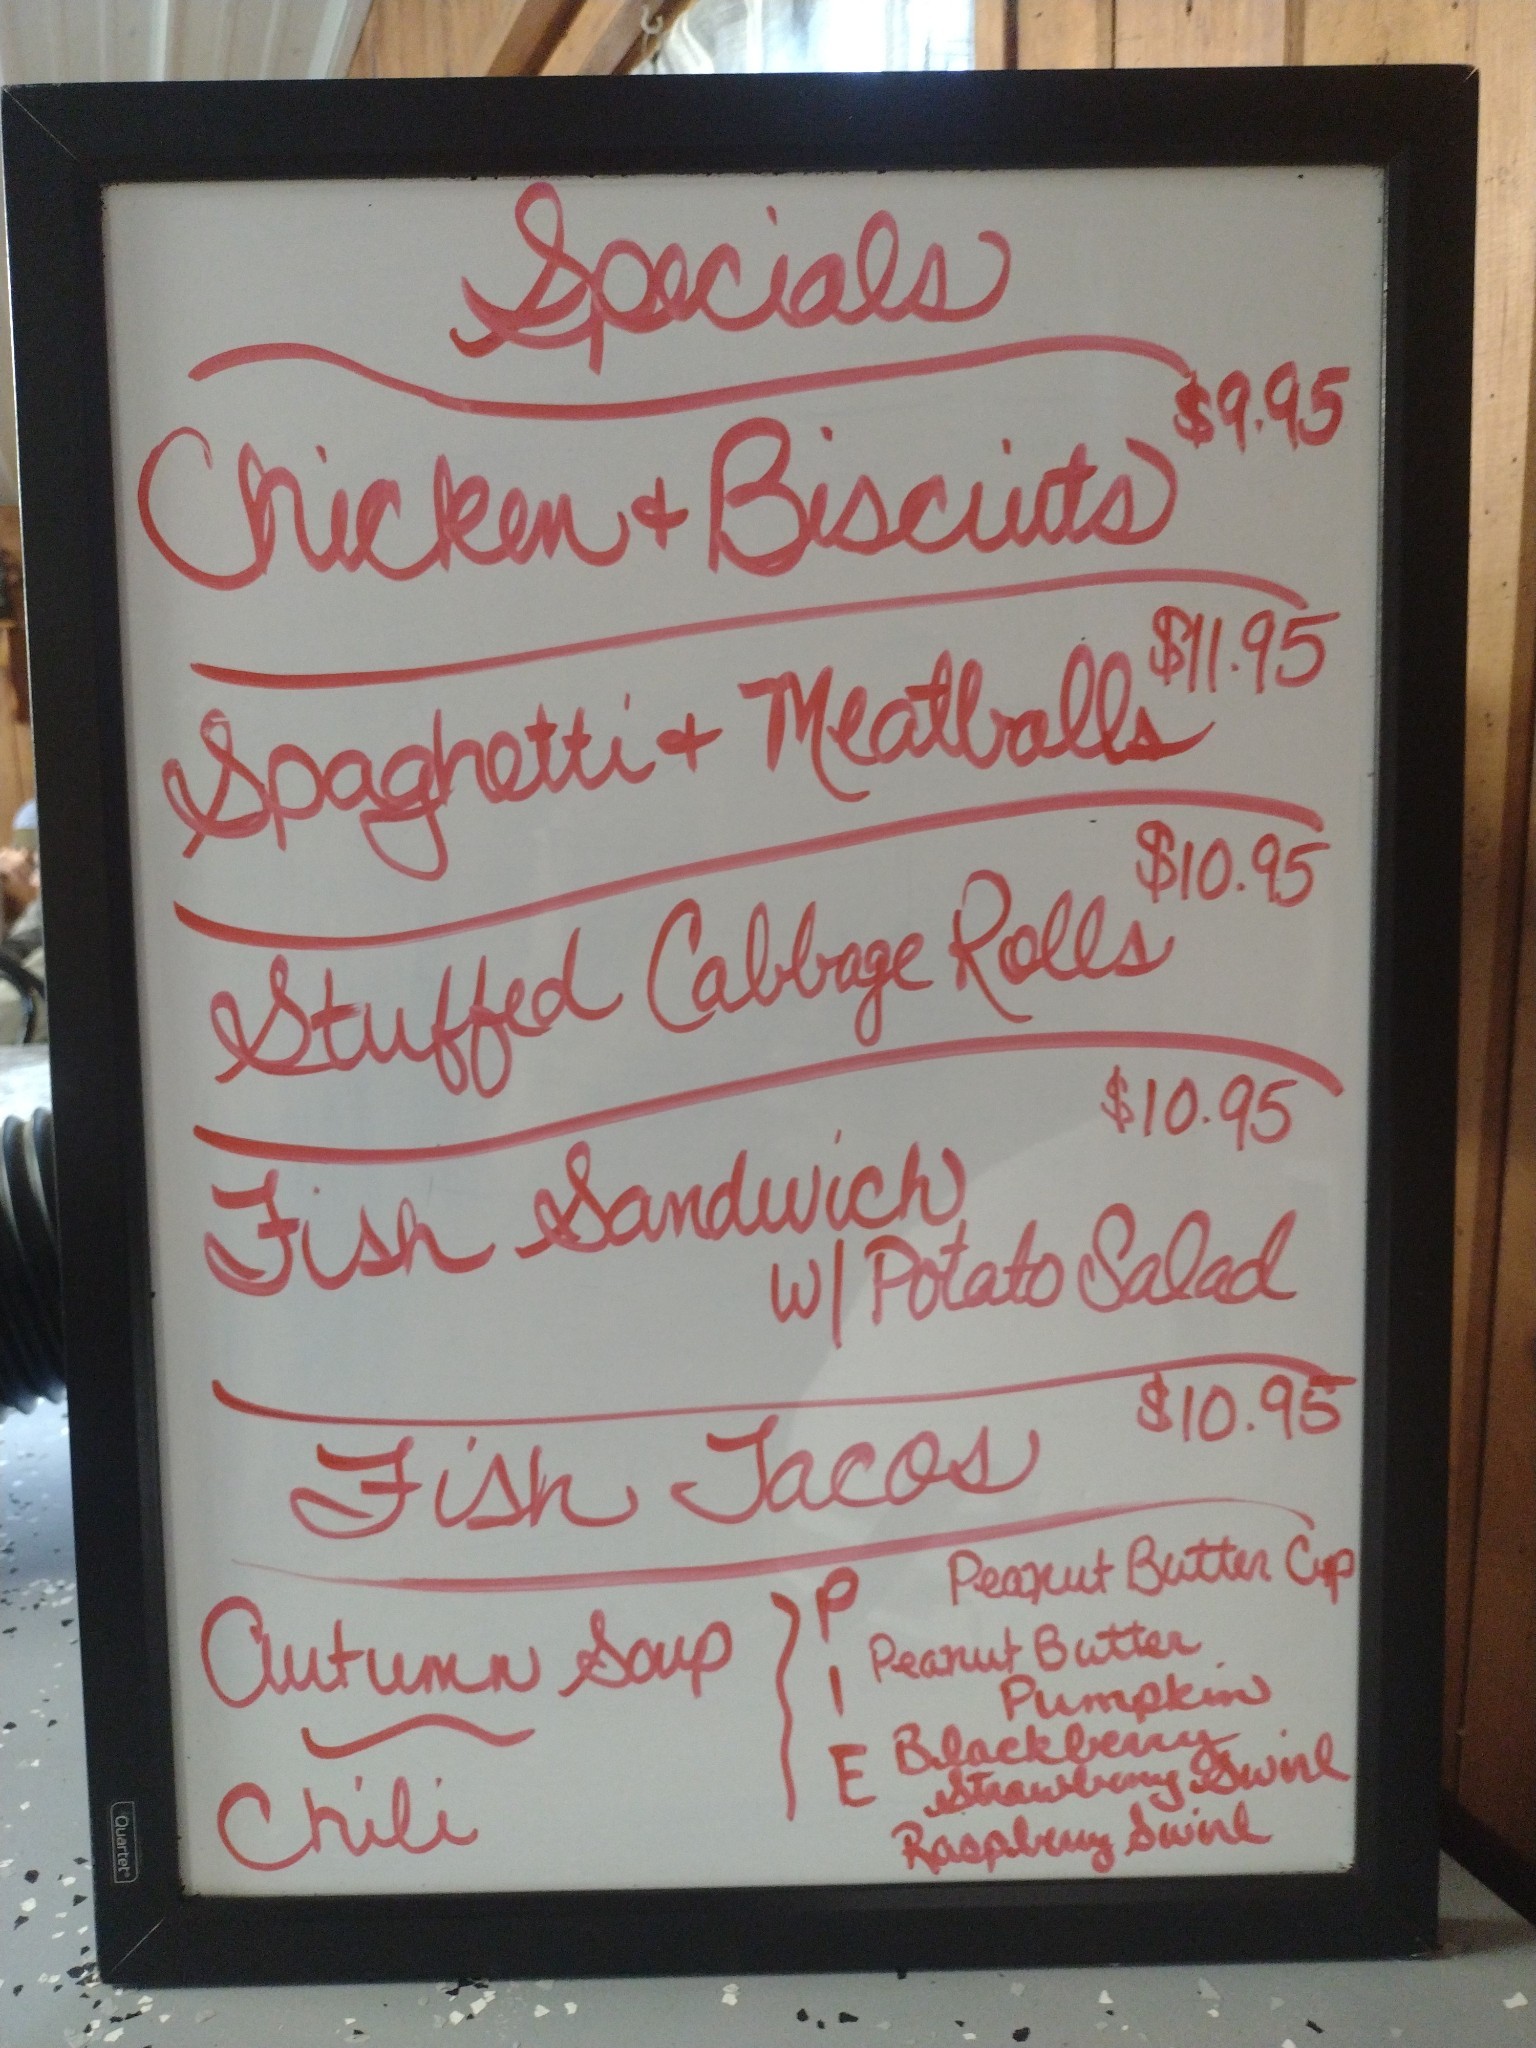 Specials
$9.95
Chicken + Biscuits
$11.95
Spaghetti + Meatballs
$10.95
Stuffed Cabbage Rolls
$10.95
Fish Sandwich
w/ Potato Salad
$10.95
Fish Tacos
Autumn Soup
Chili
PIE
Peanut Butter Cup
Peanut Butter
Pumpkin
Blackberry
Strawberry Swirl
Raspberry Swirl
Quartet